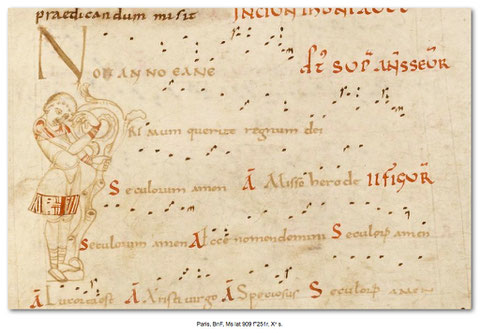 praedicandum misit
NONANNOEANE
PRimum querite regnum dei
Seculorum amen A Misse herode
Seculorum amen A Ecce nomendomini Seculorum amen
A A Xristi virgo A Speciosus Seculorum amen
Paris, BnF, Ms lat 909 f°251r, X° s.